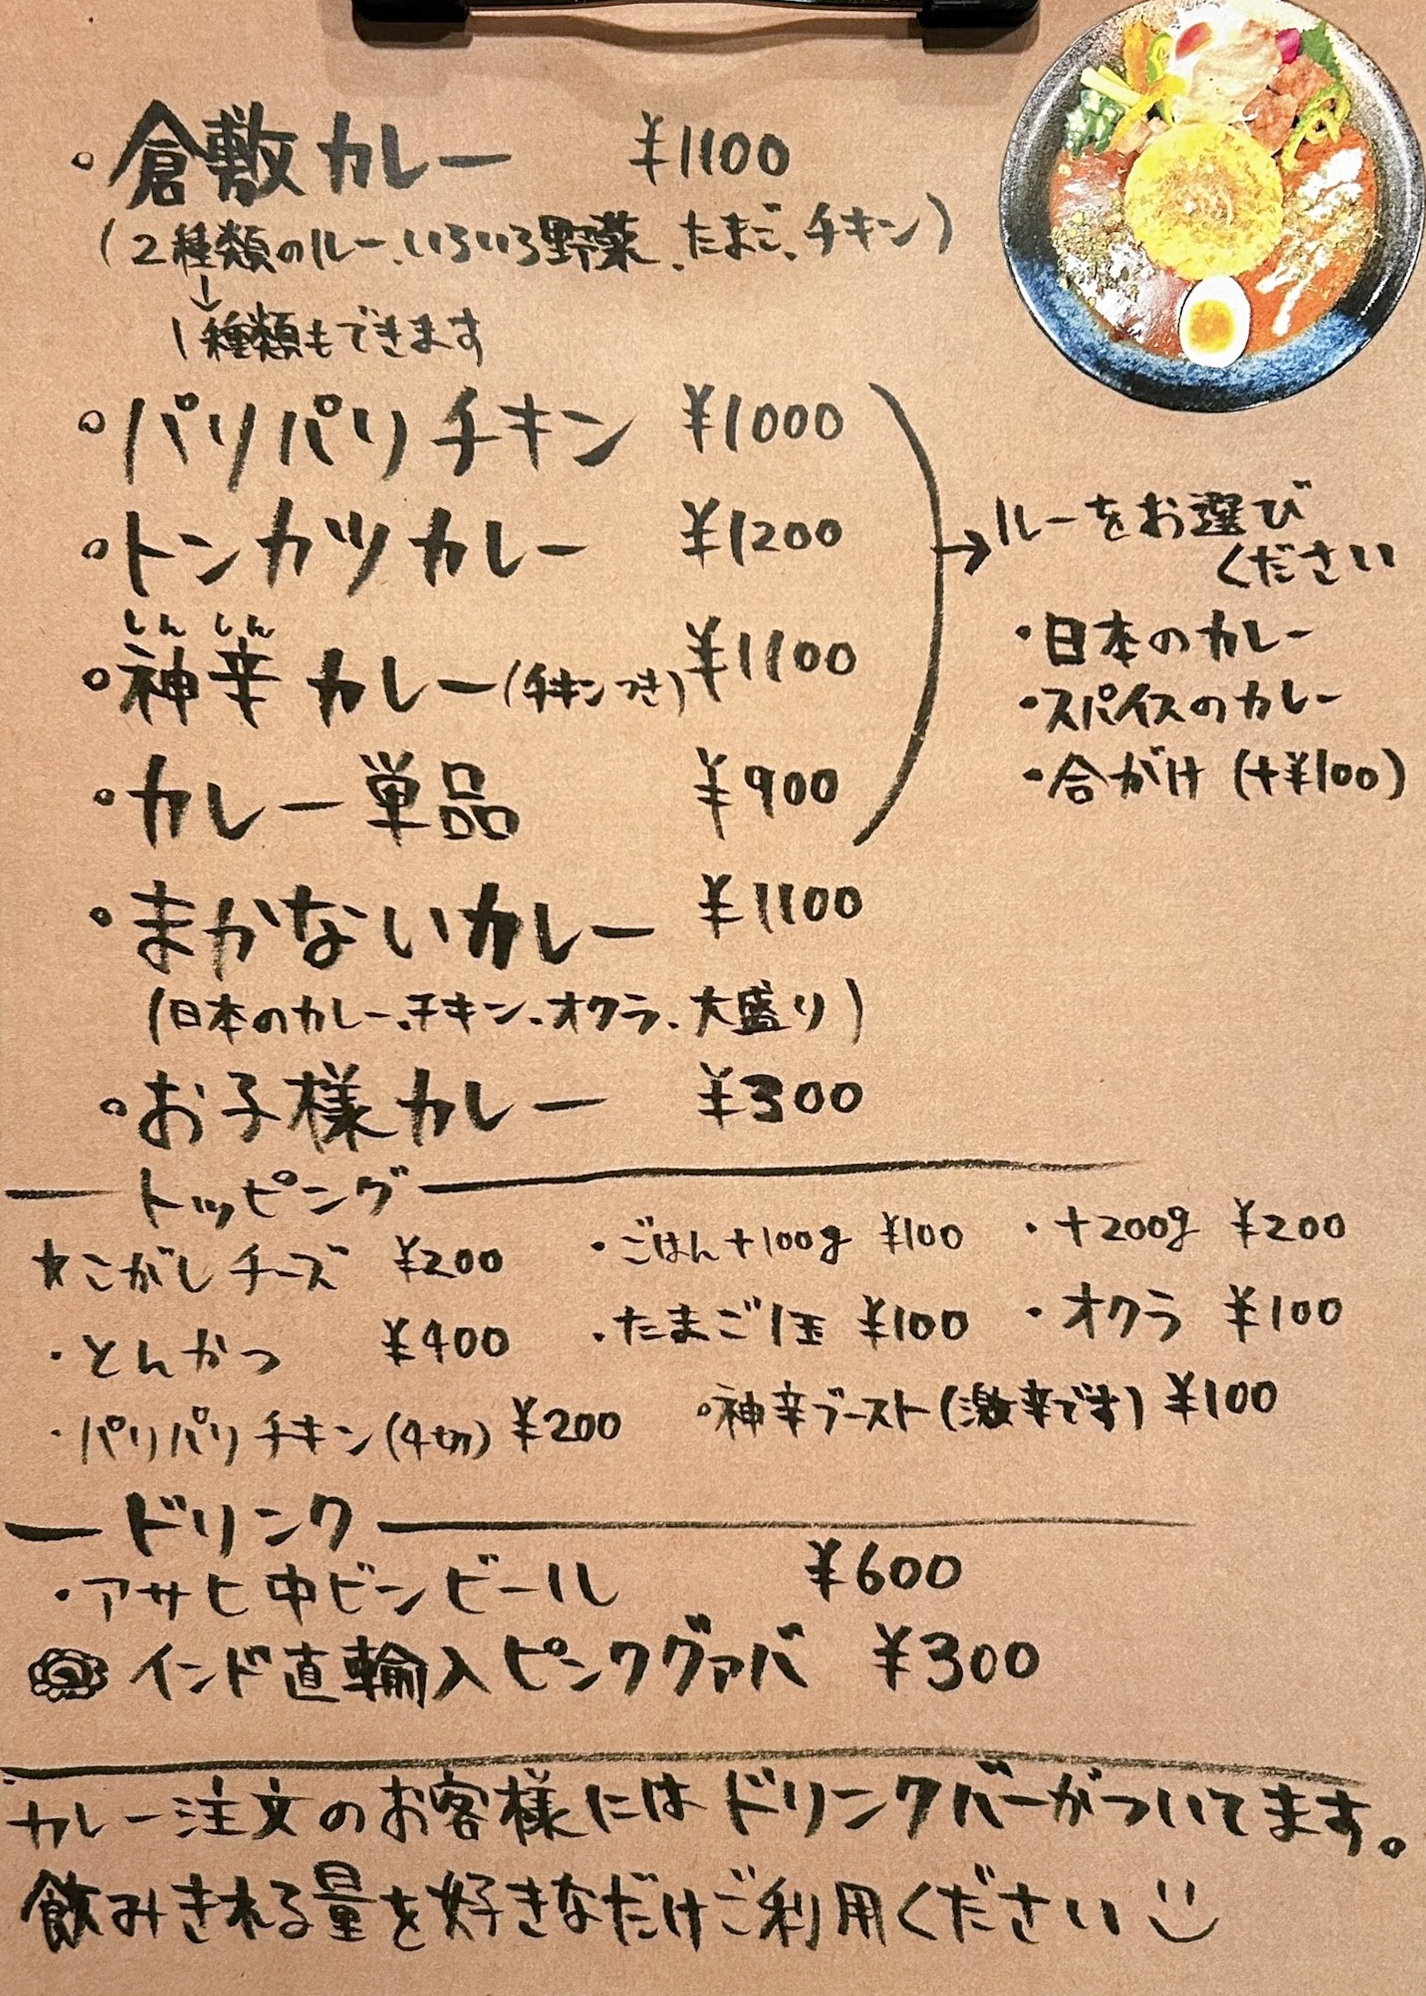 。倉敷カレー ¥1100
(2種類のルー、いろいろ野菜、たまご、チキン)
↓
1種類もできます
。パリパリチキン ¥1000
。トンカツカレー ¥1200
しんしん
。神辛カレー(チキンつき) ¥1100
。カレー単品 ¥900
→ルーをお選び
ください
・日本のカレー
・スパイスのカレー
・合がけ (+¥100)
。まかないカレー ¥1100
(日本のカレー、チキン、オクラ、大盛り)
。お子様カレー ¥300
トッピング
★こがしチーズ ¥200 ・ごはん+100g ¥100 ・+200g ¥200
・とんかつ ¥400 ・たまご1玉 ¥100 ・オクラ ¥100
・パリパリチキン(4切) ¥200 。神辛ブースト(激辛です) ¥100
ドリンク
・アサヒ中ビンビール ¥600
インド直輸入ピンクグァバ ¥300
カレー注文のお客様にはドリンクバーがついてます。
飲みきれる量を好きなだけご利用ください